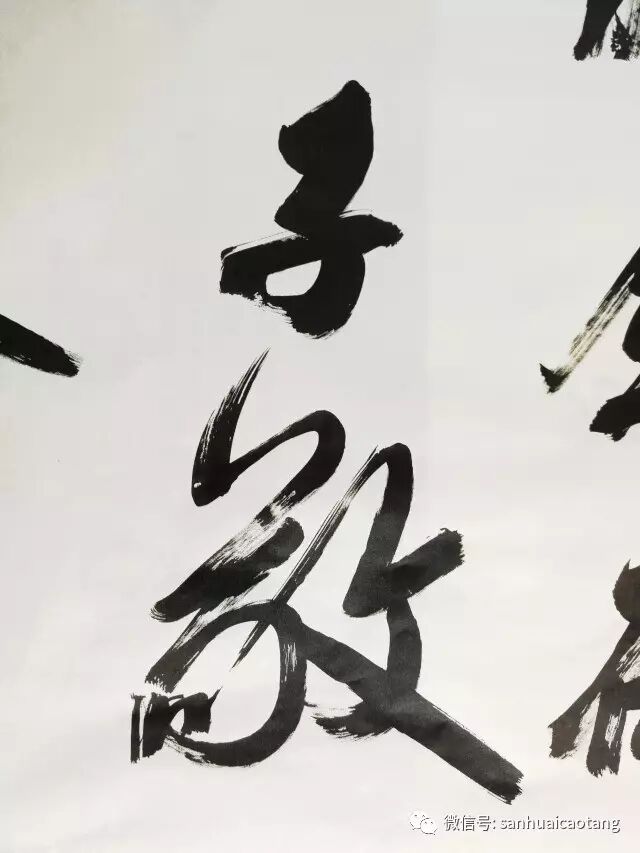 子
敬
微信号: sanhuaicaotang